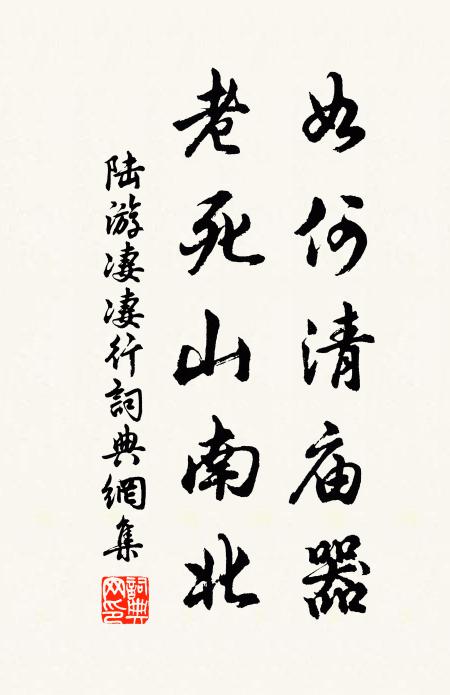 如何清庙器
老死山南北
陆游凄凄行詞典網集
詞典网印